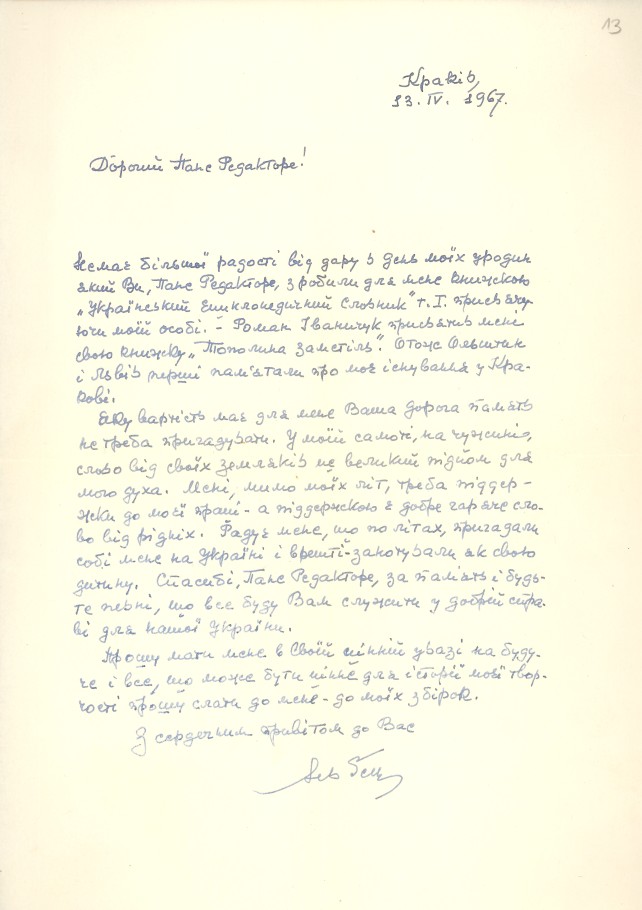 13
Краків,
13. IV. 1967.
Дорогий Пане Редакторе!
Немає більшої радості від дару в день моїх уродин
який Ви, Пане Редакторе, зробили для мене книжкою
„Український Енциклопедичний Словник" т. I. присвячу
ючи моїй особі. - Роман Іваничук присвятив мені
свою книжку „Тополина заметіль". Отож Ольштин
і Львів перші пам'ятали про моє існування у Кра-
кові.
Яку вартість має для мене Ваша дорога память
не треба пригадувати. У моїй самоті, на чужині,
слово від своїх земляків це великий підйом для
мого духа. Мені, мимо моїх літ, треба піддер-
жки до моєї праці - а піддержкою є добре гаряче сло-
во від рідних. Радує мене, що по літах, пригадали
собі мене на Україні і врешті-занотували як свою
дитину. Спасибі, Пане Редакторе, за память і будь-
те певні, що все буду Вам служити у добрій спра-
ві для нашої України.
Прошу мати мене в Своїй цінній увазі на буду-
че і все, що може бути цінне для історії моєї твор-
чості прошу слати до мене - до моїх збірок.
З сердечним привітом до Вас
Лев Ґец